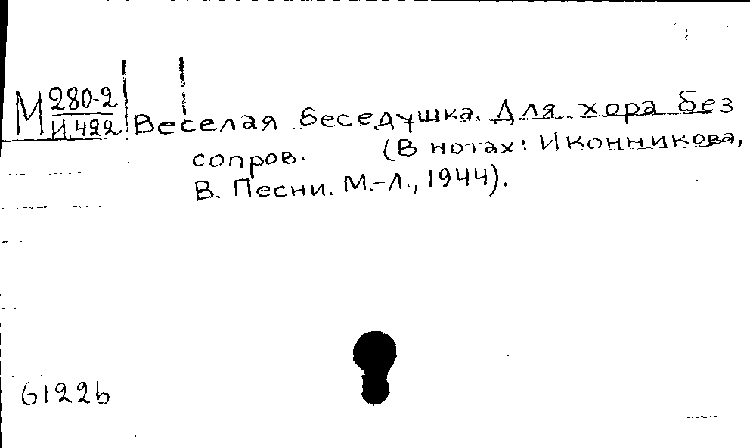 М 280-2
И 422
Веселая беседушка. Для хора без
сопров. (В нотах: Иконникова,
В. Песни. М.-Л., 1944).
6122b